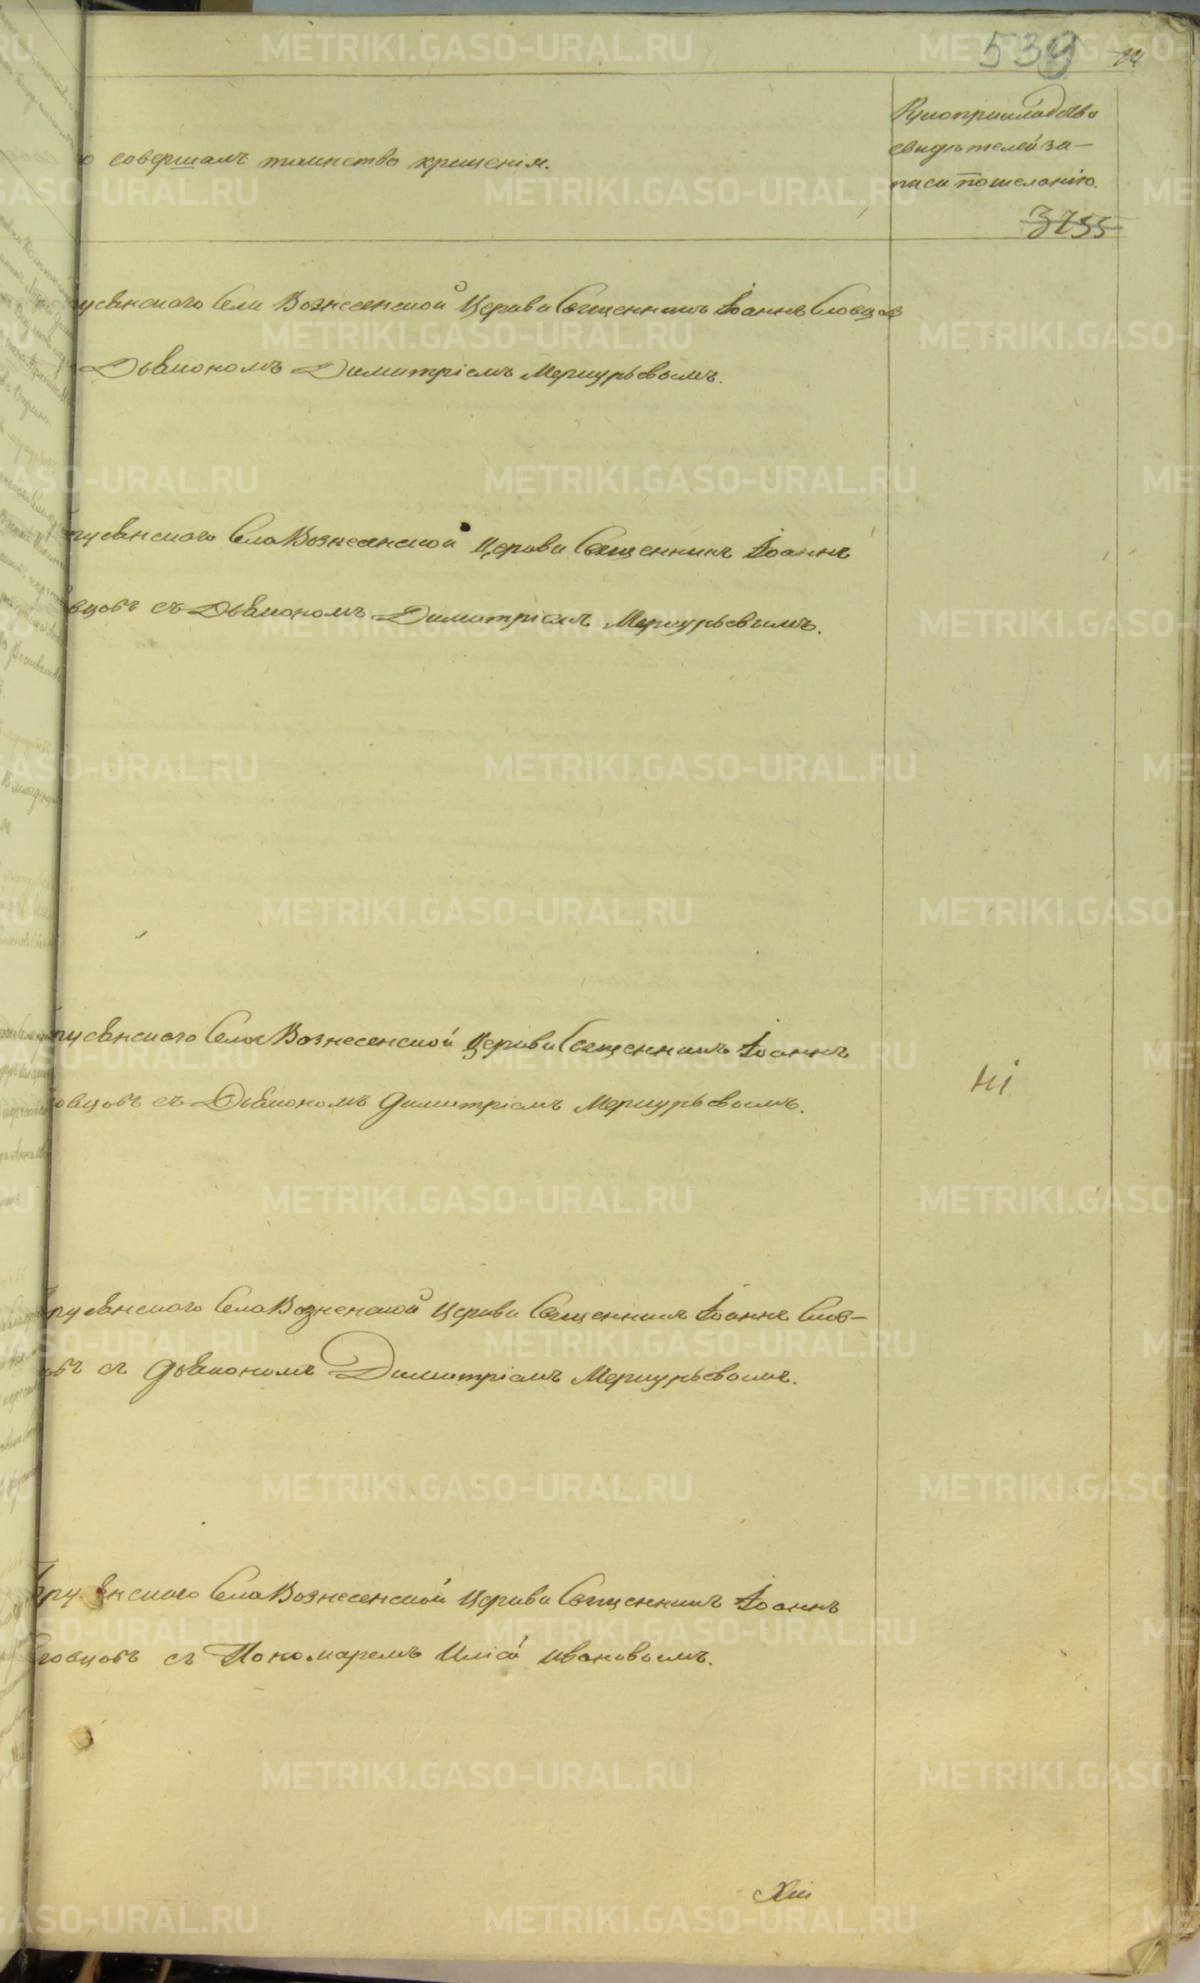 539
Рукоприкладство
свидѣтелей за-
писи по желанію.
о совершалъ таинство крещенія.
3255
усянского Села Вознесенской Церкви Священникъ Іоаннъ Словцов
Дьякономъ Димитріемъ Меркурьевымъ.
русянского Села Вознесенской Церкви Священникъ Іоаннъ
овцовъ съ Дьякономъ Димитріемъ Меркурьевымъ.
русянского Села Вознесенской Церкви Священникъ Іоаннъ
овцовъ съ Дьякономъ Димитріемъ Меркурьевымъ.
Брусянского Села Вознесенской Церкви Священникъ Іоаннъ Слов-
овъ съ дьякономъ Димитріемъ Меркурьевымъ.
Брусянского Села Вознесенской Церкви Священникъ Іоаннъ
Словцовъ съ Пономаремъ Иліей Ивановымъ.
METRIKI.GASO-URAL.RU